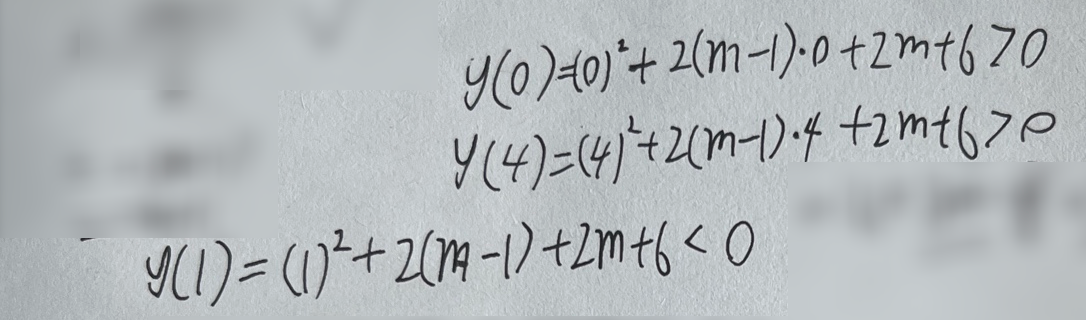 y(0)=(0)²+2(m-1)·0+2m+6>0
y(4)=(4)²+2(m-1)·4+2m+6>0
y(1)=(1)²+2(m-1)+2m+6<0